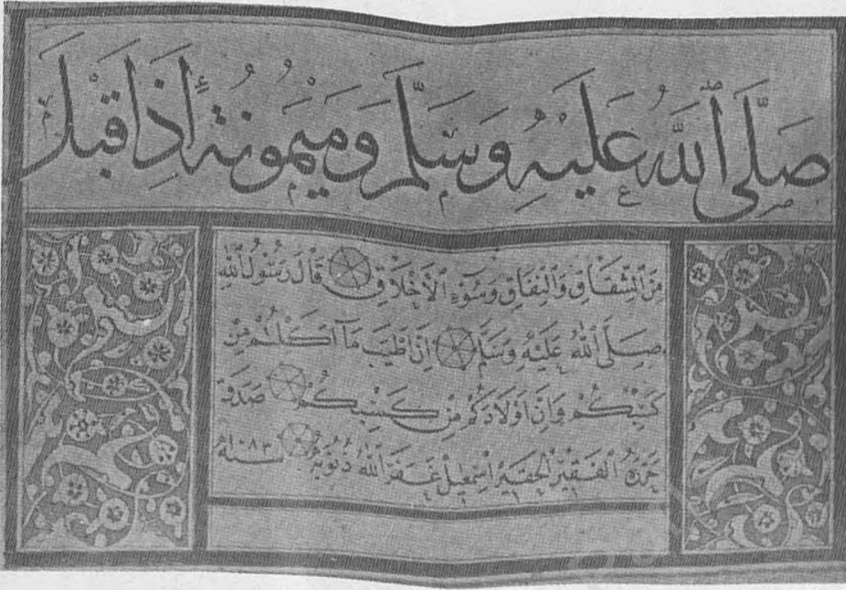 صَلَّى ٱللَّهُ عَلَيْهِ وَسَلَّمَ وَمَيْمُونَةُ إِذَاقْبَلَ
مِنَ ٱلشِّقَاقِ وَٱلنِّفَاقِ وَسُوۤءِ ٱلْاَخْلَاقِ قَالَ رَسُولُ ٱللّٰهِ
صَلَّى ٱللّٰهُ عَلَيْهِ وَسَلَّمَ اِنَّ اَطْيَبَ مَآ اَكَلْتُمْ مِنْ
كَسْبِكُمْ وَاِنَّ اَوْلَادَكُمْ مِنْ كَسْبِكُمْ صَدَقَ
حَرَّرَهُ ٱلْفَقِيرُ ٱلْحَقِيرُ اِسْمٰعِيلُ غَفَرَ ٱللّٰهُ ذُنُوبَهُ سنة ١٠٨٣